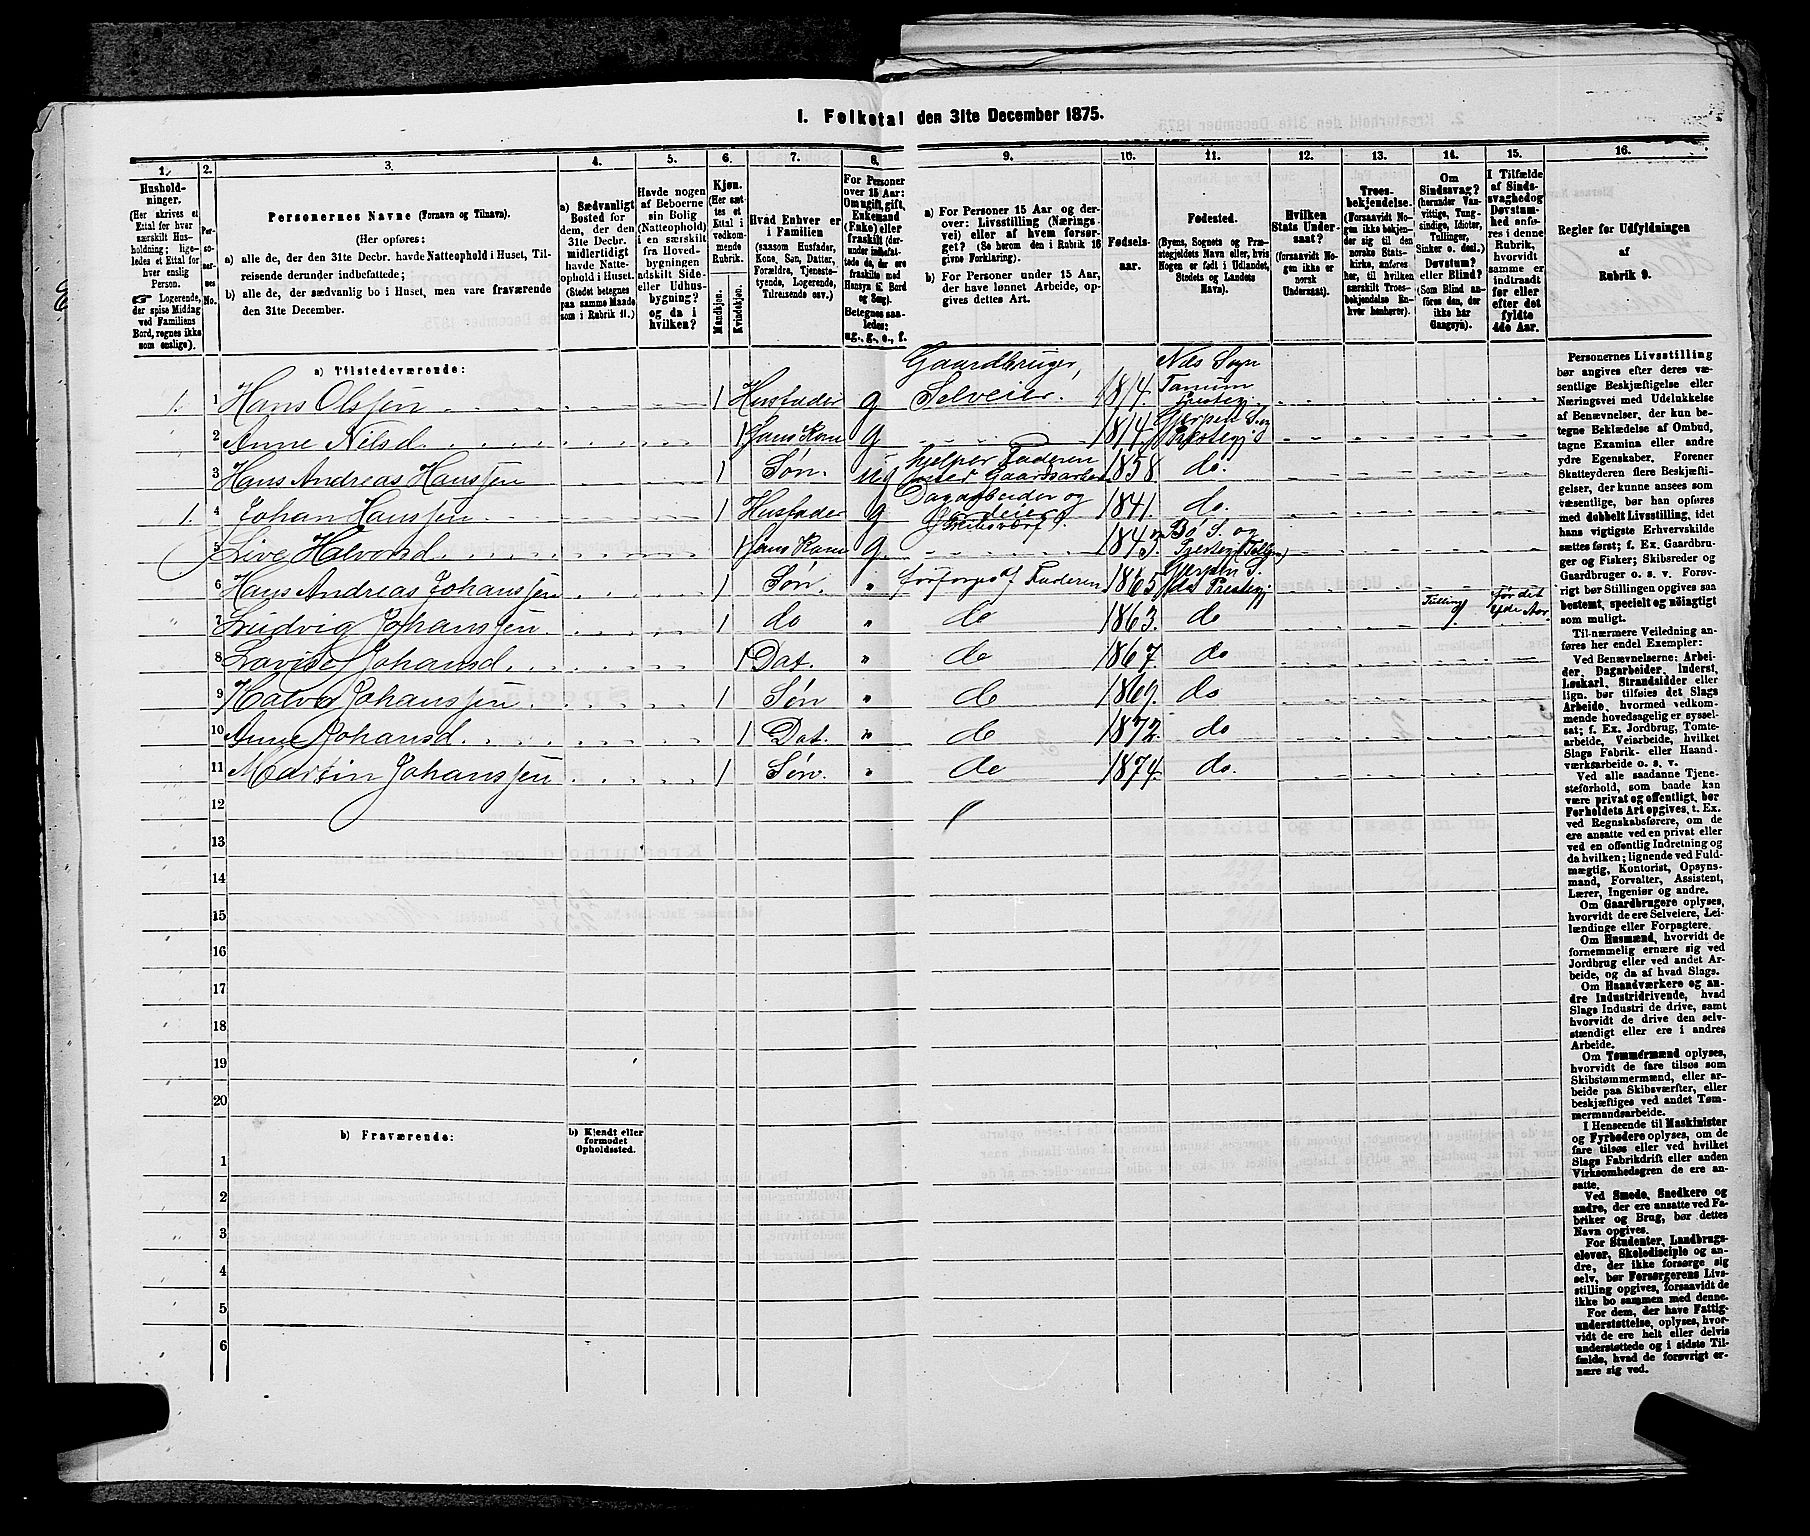 I. Folketal den 31te December 1875.
1. 2. 3. 4. 5. 6. 7. 8. 9. 10. 11. 12. 13. 14. 15. 16.
Hushold-
ninger.
(Her skrives et
Ettal for hver
særskilt Hus-
holdning; lige-
ledes et Ettal for
hver enslig
Person.
☞ Logerende,
der spise Middag
ved Familiens
Bord, regnes ikke
som enslige).
Per-
so-
ner-
nes
No.
Personernes Navne (Fornavn og Tilnavn).
(Her opføres:
a) alle de, der den 31te Decbr. havde Natteophold i Huset, Til-
reisende derunder indbefattede;
b) alle de, der sædvanlig bo i Huset, men vare fraværende
den 31te December.
a) Sædvanligt
Bosted for
dem, der den
31te Decbr.
midlertidigt
havde Natte-
ophold i Huset.
(Stedet betegnes
paa samme Maade
som i Rubrik 11.)
Havde nogen
af Beboerne
sin Bolig
(Natteophold)
i en særskilt
fra Hoved-
bygningen
adskilt Side-
eller Udhus-
bygning?
og da i
hvilken?
Kjøn.
(Her sæt-
tes et
Ettal i
vedkom-
mende
Rubrik.
Mandkjøn.
Kvindekjøn.
Hvad Enhver er
i Familien
(saasom Husfader,
Kone, Søn, Datter,
Forældre, Tjeneste-
tyende, Logerende,
Tilreisende osv.)
For Personer
over 15 Aar:
Om ugift, gift,
Enkemand
(Enke) eller
fraskilt (der-
under indbefat-
tede de, der ere
fraskilte med
Hensyn til Bord
og Seng).
Betegnes saa-
ledes:
ug., g., e., f.
a) For Personer 15 Aar og der-
over: Livsstilling (Nærings-
vei) eller af hvem forsør-
get? (Se herom den i Rubrik 16
givne Forklaring).
b) For Personer under 15 Aar,
der have lønnet Arbeide, op-
gives dettes Art.
Fødsels-
aar.
Fødested.
(Byens, Sognets og Præ-
stegjeldets Navn eller, hvis
Nogen er født i Udlandet,
Stedets og Landets
Navn).
Hvilken
Stats Under-
saat?
(forsaavidt No-
gen ikke er
norsk
Undersaat).
Troes-
bekjendelse.
(Forsaavidt No-
gen ikke bekjen-
der sig til den
norske Stats-
kirke, anføres
her, til hvilken
særskilt Troes-
bekjendelse En-
hver henhører).
Om
Sindssvag?
(herunder Van-
vittige, Tung-
sindige, Idioter,
Tullinger,
Sinker o. desl.)
Døvstum?
eller Blind?
(Som Blind an-
føres den, der
ikke har
Gangsyn).
I Tilfælde
af Sinds-
svaghed og
Døvstum-
hed anfø-
res i denne
Rubrik,
hvorvidt
samme er
indtraadt
før eller
efter det
fyldte
4de Aar.
Regler for Udfyldningen
af
Rubrik 9.
a) Tilstedeværende:
1. 1 Hans Olssen 1 Husfader g Gaardbruger, Selveier. 1814. Næs Sogn Tanum Prestegj.
2 Anne Nilsd 1 Hans Kone g 1814. Gjerpen S. og Prestegj.
3 Hans Andreas Hanssen 1 Søn. ug hjelper Faderen med Gaardsarbeid 1858. do.
1. 4 Johan Hanssen 1 Husfader g Dagarbeider og 1841. do.
5 Live Halvorsd 1 Hans Kone g 1843. Bø S. og Prestegj.
6 Hans Andreas Johanssen 1 Søn " forsørges af Faderen 1865 Gjerpen S. Prestegj.
7 Ludvig Johanssen 1 do " do 1863. do Tulling før det 4de Aar.
8 Lovise Johansd 1 Dat. " do 1867. do
9 Halvor Johanssen 1 Søn " do 1869. do
10 Anne Johansd. 1 Dat. " do 1872. do
11 Martin Johanssen 1 Søn. " do 1874. do.
12
13
14
15
16
17
18
19
20
b) Fraværende:
b) Kjendt eller
formodet
Opholdssted.
1
2
3
4
5
6
Personernes Livsstilling
bør angives efter deres væ-
sentlige Beskjæftigelse eller
Næringsvei med Udelukkelse
af Benævnelser, der kun be-
tegne Beklædelse af Ombud,
tagne Examina eller andre
ydre Egenskaber. Forener
Skatteyderen flere Beskjæfti-
gelser, der kunne ansees som
væsentlige, bør han opføres
med dobbelt Livsstilling, idet
hans vigtigste Erhvervskilde
sættes først; f. Ex. Gaardbru-
ger og Fisker; Skibsreder og
Gaardbruger o. s. v. Forøv-
rigt bør Stillingen opgives saa
bestemt, specielt og nøiagtigt
som muligt.
Til nærmere Veiledning an-
føres her endel Exempler:
Ved Benævnelserne: Arbei-
der, Dagarbeider, Inderst,
Løskarl, Strandsidder eller
lign. bør tilføies det Slags
Arbeide, hvormed vedkom-
mende hovedsagelig er syssel-
sat; f. Ex. Jordbrug, Tomte-
arbeide, Veiarbeide, hvilket
Slags Fabrik- eller Haand-
værksarbeide o. s. v.
Ved alle saadanne Tjene-
steforhold, som baade kan
være privat og offentligt, bør
Forholdets Art opgives, t. Ex.
ved Regnskabsførere, om de
ere ansatte ved en privat eller
ved en offentlig Indretning og
da hvilken; lignende ved Fuld-
mægtig, Kontorist, Opsyns-
mand, Forvalter, Assistent,
Lærer, Ingeniør og andre.
Om Gaardbrugere oplyses,
hvorvidt de ere Selveiere, Lei-
lændinge eller Forpagtere.
Om Husmænd, hvorvidt de
fornemmelig ernære sig ved
Jordbrug eller ved andet Ar-
beide, og da af hvad Slags.
Om Haandværkere og an-
dre Industridrivende, hvad
Slags Industri de drive, samt
hvorvidt de drive den selv-
stændigt eller ere i andres
Arbeide.
Om Tømmermænd oplyses,
hvorvidt de fare tilsøs som
Skibstømmermænd, eller ar-
beide paa Skibsværfter, eller
beskjæftiges ved andet Tøm-
mermandsarbeide.
I Henseende til Maskinister
og Fyrbødere oplyses, om de
fare tilsøs eller ved hvilket
Slags Fabrikdrift eller anden
Virksomhedsgren de ere an-
satte.
Ved Smede, Snedkere og
andre, der ere ansatte ved Fa-
briker og Brug, bør dettes
Navn opgives.
For Studenter, Landbrugs-
elever, Skoledisciple og an-
dre, der ikke forsørge sig
selv, bør Forsørgerens Livs-
stilling opgives, forsaavidt de
ikke bo sammen med denne.
For dem, der have Fattig-
understøttelse, oplyses, hvor-
vidt de ere helt eller delvis
understøttede og i sidste Til-
fælde, hvad de forøvrigt er-
nære sig ved.